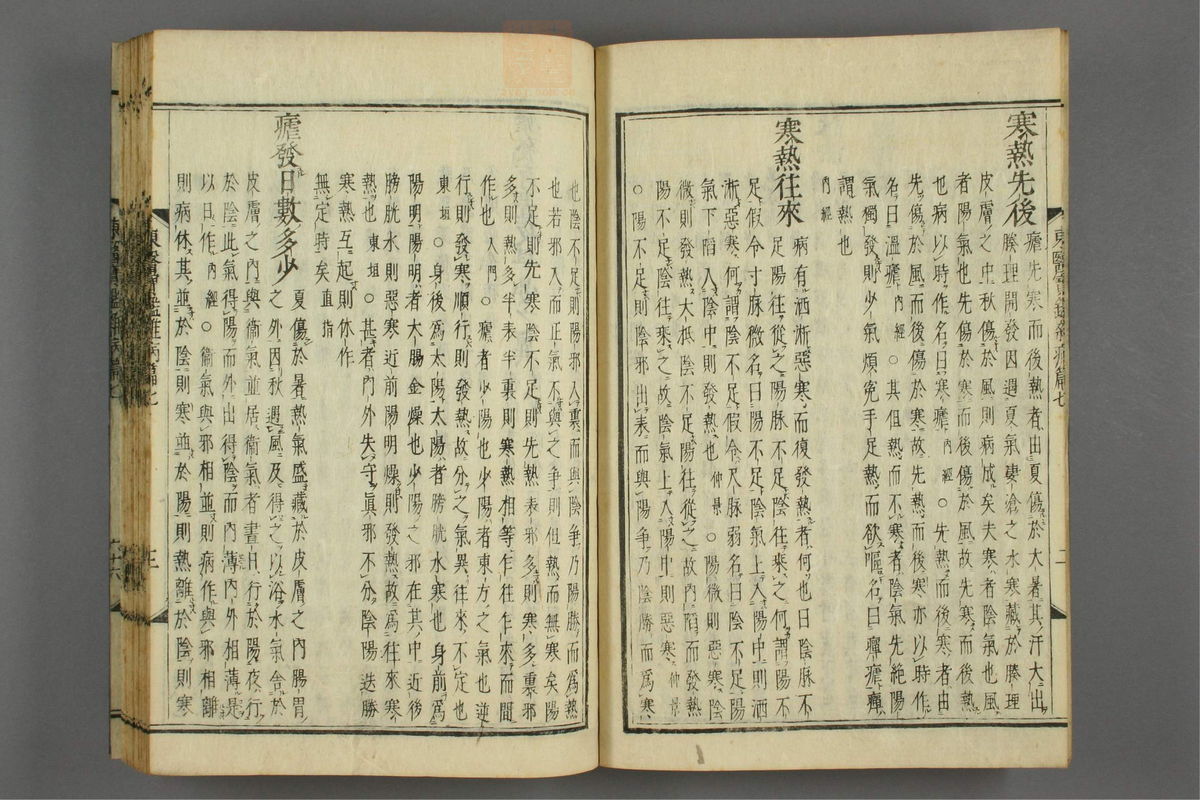 寒熱先後
瘧先寒而後熱者由夏傷於大暑其汗大出
腠理開發因遇夏氣凄滄之水寒藏於腠理
皮膚之中秋傷於風則病成矣夫寒者陰氣也風
者陽氣也先傷於寒而後傷於風故先寒而後熱
也病以時作名曰寒瘧內經○先熱而後寒者由
先傷於風而後傷於寒故先熱而後寒亦以時作
名曰溫瘧內經○其但熱而不寒者陰氣先絶陽
氣獨發則少氣煩冤手足熱而欲嘔名曰癉瘧癉
謂熱也
內經
寒熱往來
病有洒淅惡寒而復發熱者何也曰陰脉不
足陽往從之陽脉不足陰往來之何謂陽不
足假令寸脉微名曰陽不足陰氣上入陽中則洒
淅惡寒何謂陰不足假令尺脉弱名曰陰不足陽
氣下陷入陰中則發熱也仲景○陽微則惡寒陰
微則發熱大抵陰不足陽往從之故內陷而發熱
陽不足陰往來之故陰氣上入陽中則惡寒仲景
○陽不足則陰邪出表而與陽爭乃陰勝而爲寒
也陰不足則陽邪入裏而與陰爭乃陽勝而爲熱
也若邪入而正氣不與之爭則但熱而無寒矣陽
不足則先寒陰不足則先熱表邪多則寒多裏邪
多則熱多半表半裏則寒熱相等乍往乍來而間
作也入門○瘧者少陽也少陽者東方之氣也逆
行則發寒順行則發熱故分之氣異往來不定也
東垣○身後爲太陽太陽者膀胱水寒也身前爲
陽明陽明者大腸金燥也少陽之邪在其中近後
膀胱水則惡寒近前陽明燥則發熱故爲往來寒
熱也東垣○甚者內外失守眞邪不分陰陽迭勝
寒熱互起則休作
無定時矣直指
瘧發日數多少
夏傷於暑熱氣盛藏於皮膚之內腸胃
之外因秋遇風及得之以浴水氣舍於
皮膚之內與衞氣並居衞氣者晝日行於陽夜行
於陰此氣得陽而外出得陰而內薄內外相薄是
以日作內經○衞氣與邪相並則病作與邪相離
則病休其並於陰則寒並於陽則熱離於陰則寒